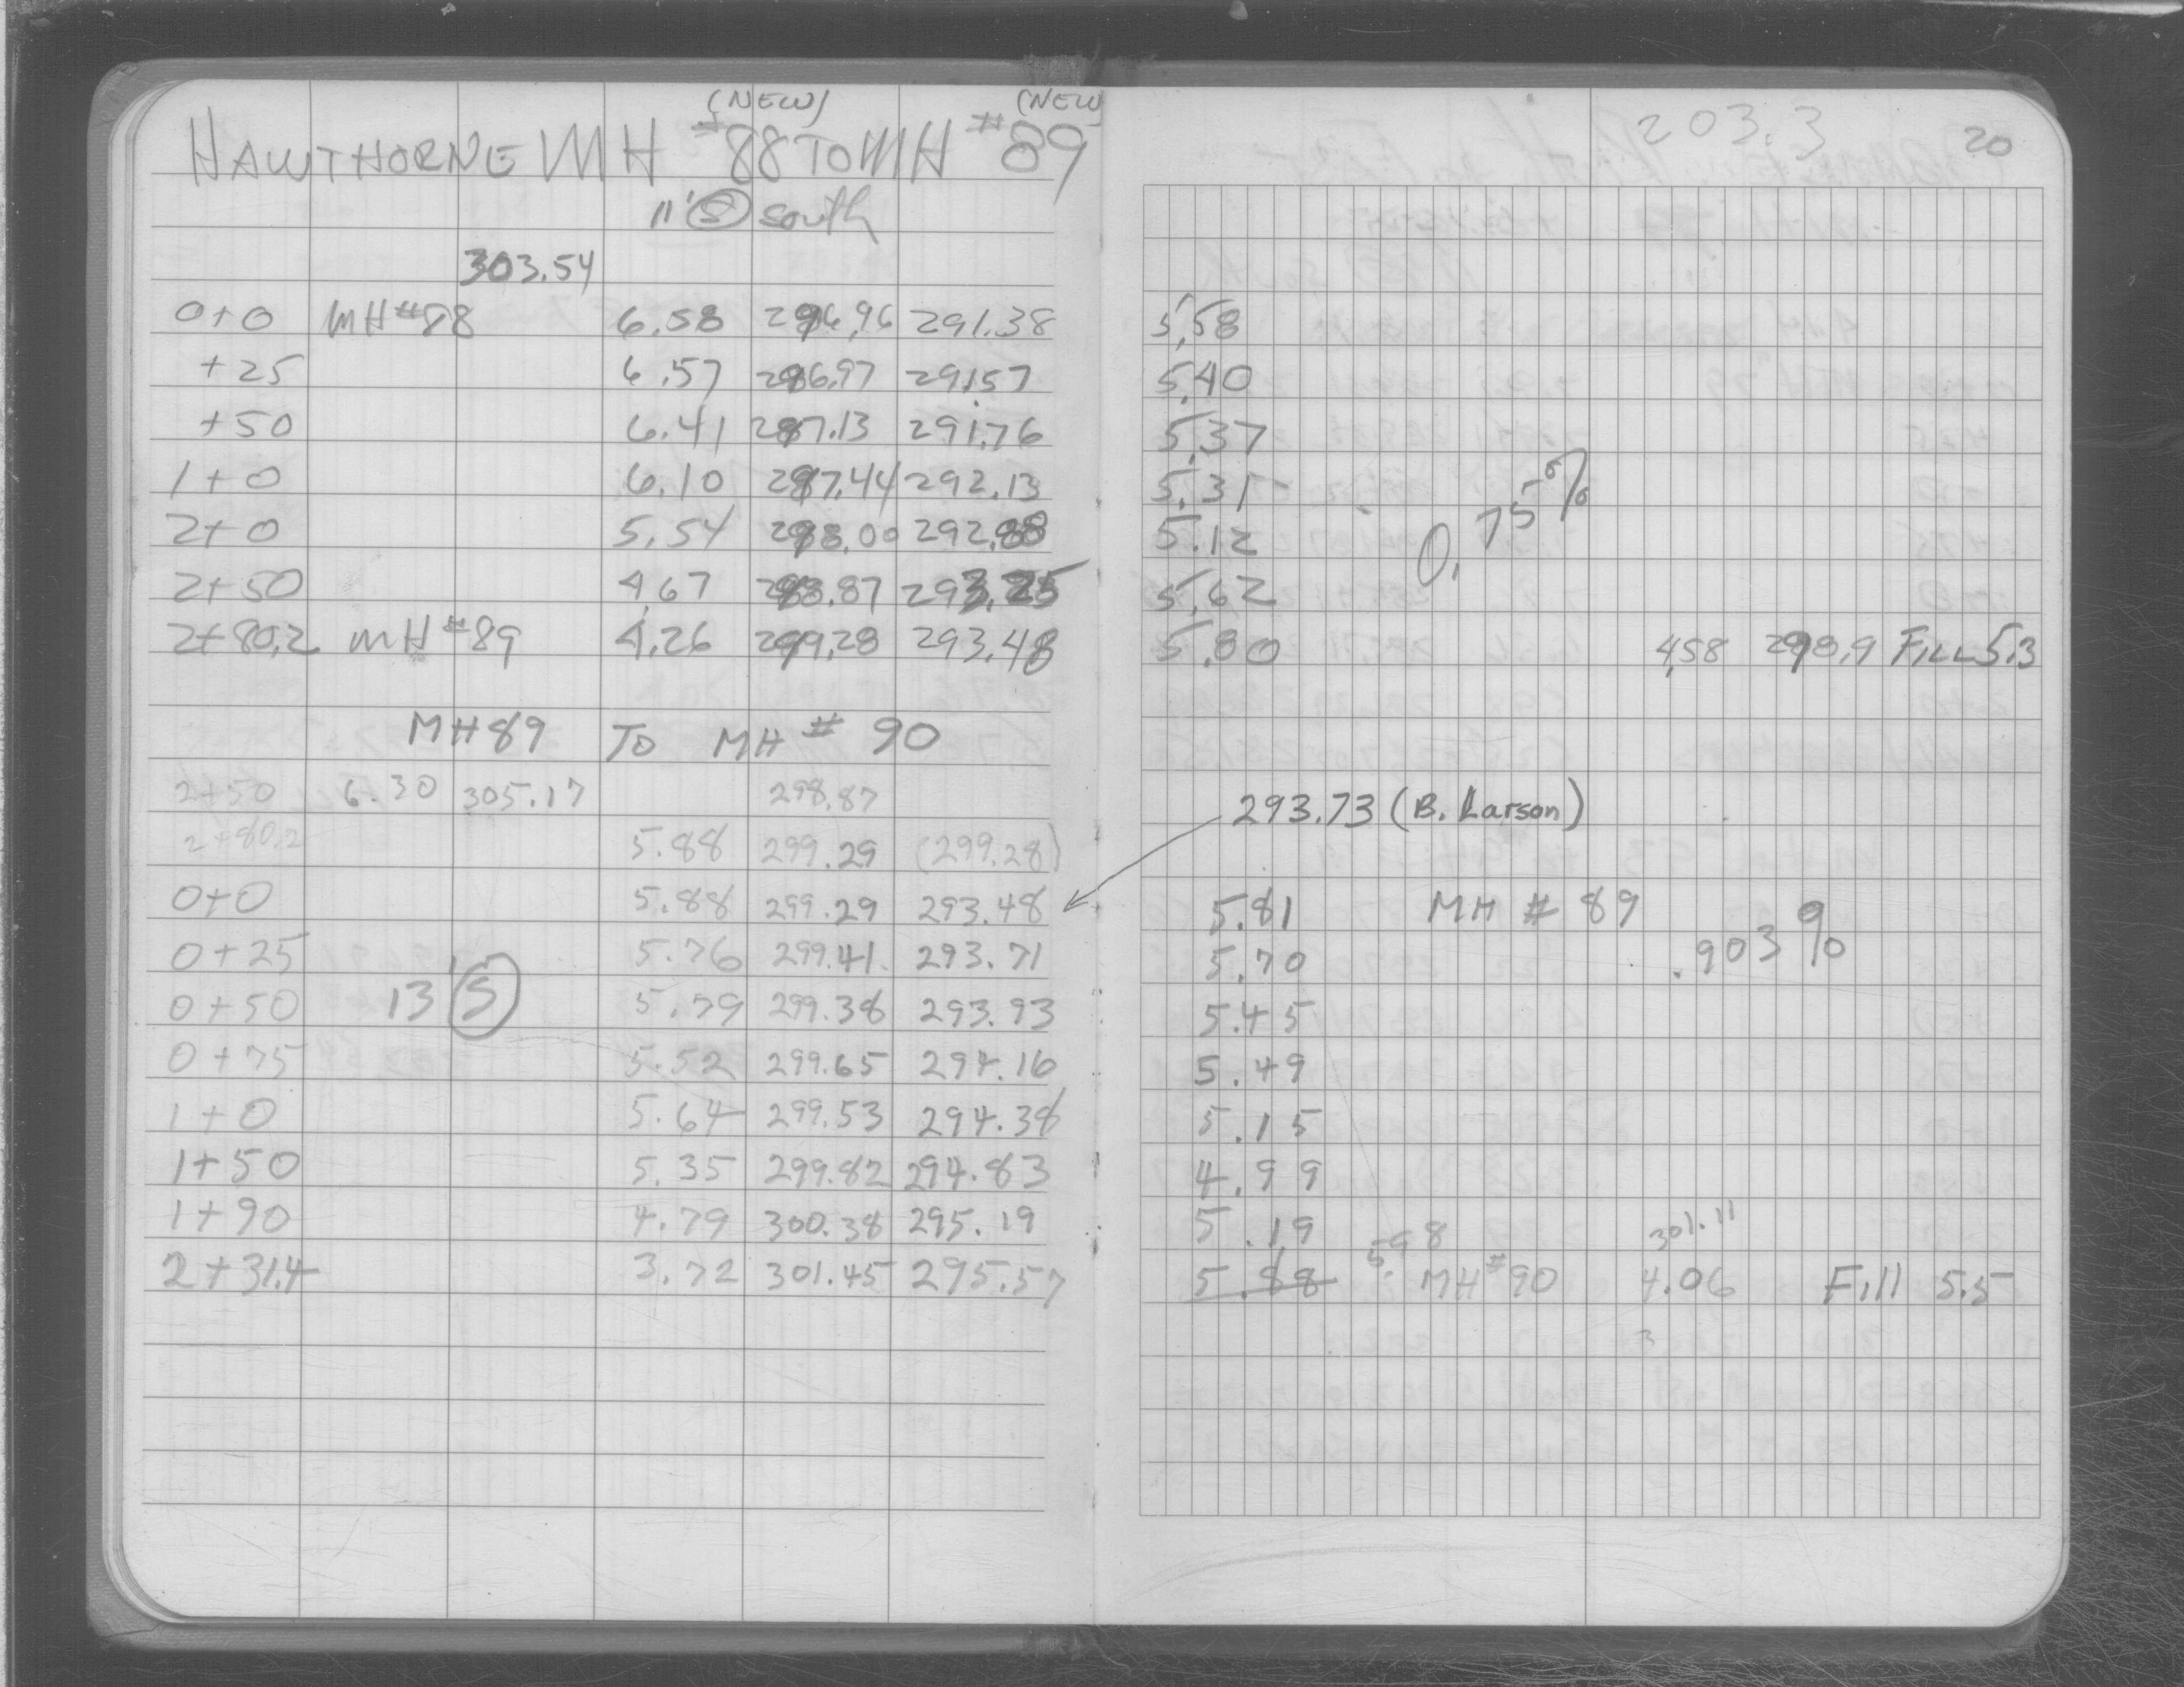 (NEW) (NEW)
HAWTHORNE MH #88 TO MH #89
11' S south
303.54
0+0 MH#88 6.58 296.96 291.38
+25 6.57 296.97 291.57
+50 6.41 297.13 291.76
1+0 6.10 297.44 292.13
2+0 5.54 298.00 292.88
2+50 4.67 298.87 293.25
2+80.2 MH#89 4.26 299.28 293.48
MH89 TO MH # 90
2+50 6.30 305.17 298.87
2+80.2 5.88 299.29 (299.28)
0+0 5.88 299.29 293.48
0+25 5.76 299.41 293.71
0+50 13' S 5.79 299.38 293.93
0+75 5.52 299.65 294.16
1+0 5.64 299.53 294.38
1+50 5.35 299.82 294.83
1+90 4.79 300.38 295.19
2+31.4 3.72 301.45 295.57
203.3 20
5.58
5.40
5.37
5.31
5.12 0.75%
5.62
5.80 4.58 298.9 FILL 5.3
293.73 (B. Larson)
5.81 MH # 89
5.70 .903%
5.45
5.49
5.15
4.99
5.19 5.98 301.11
5.88 MH #90 4.06 Fill 5.5
3